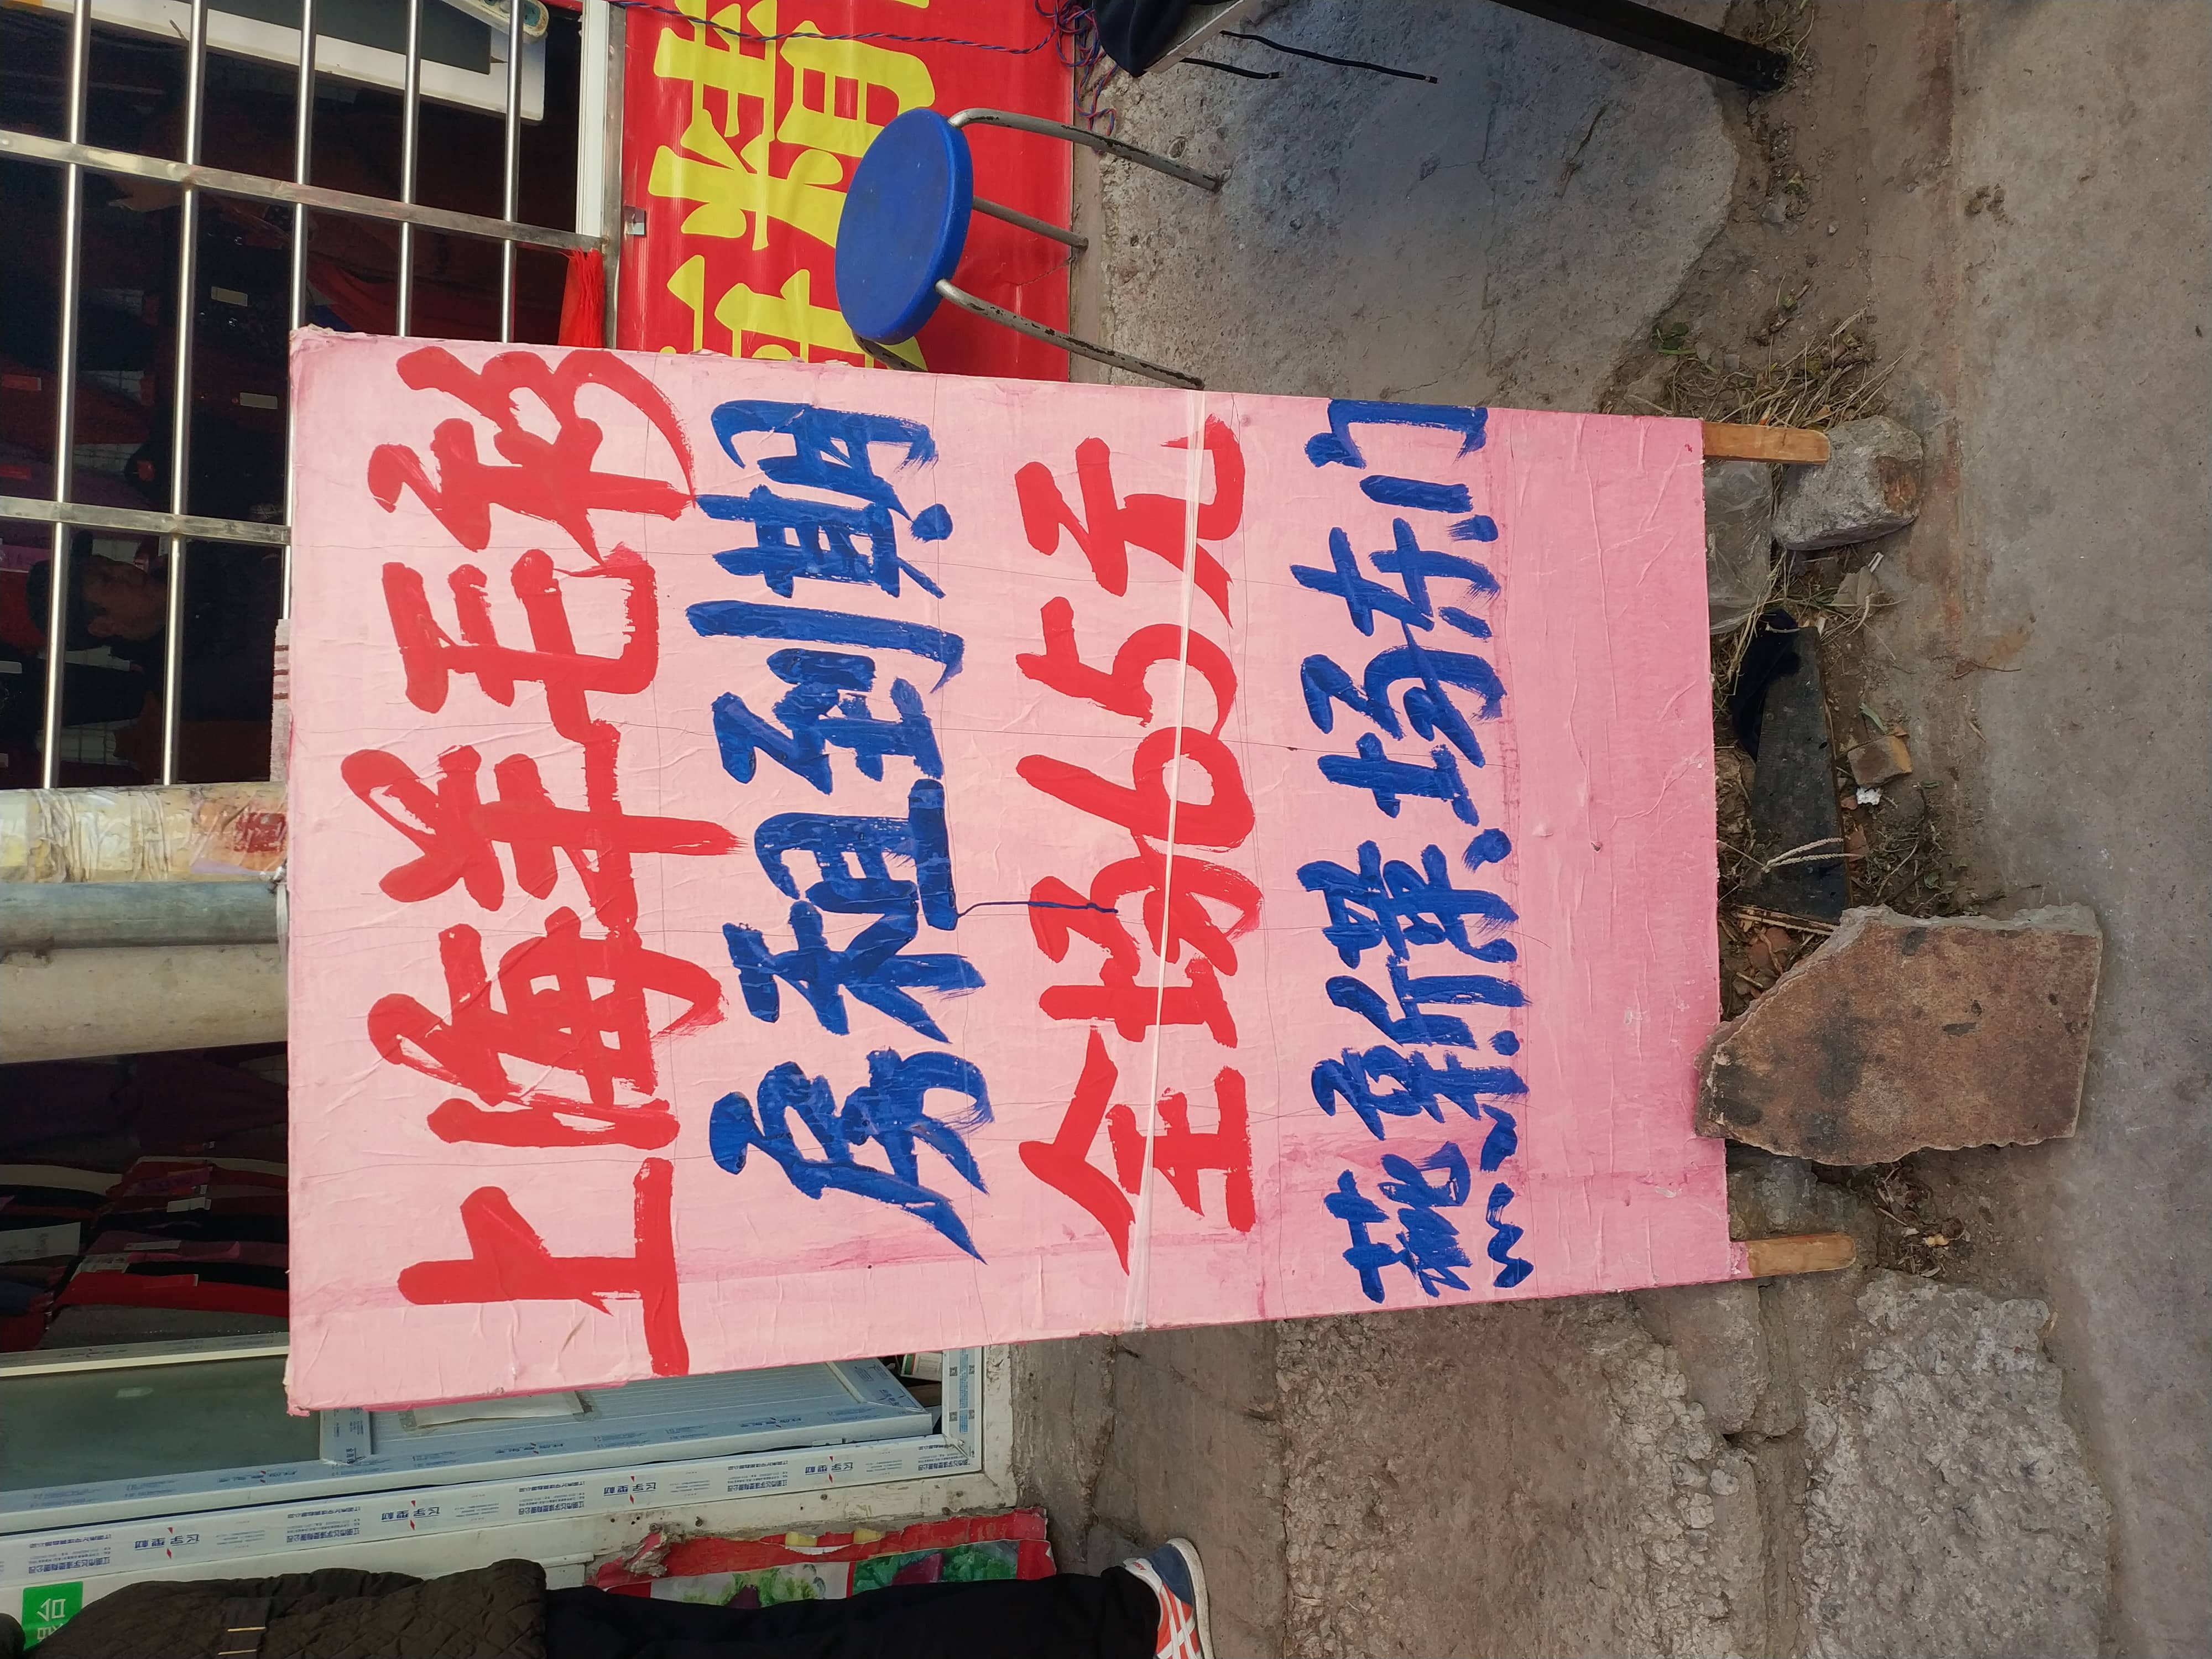 上海羊毛衫
房租到期
全场65元
燕新菜场东门
海精
台